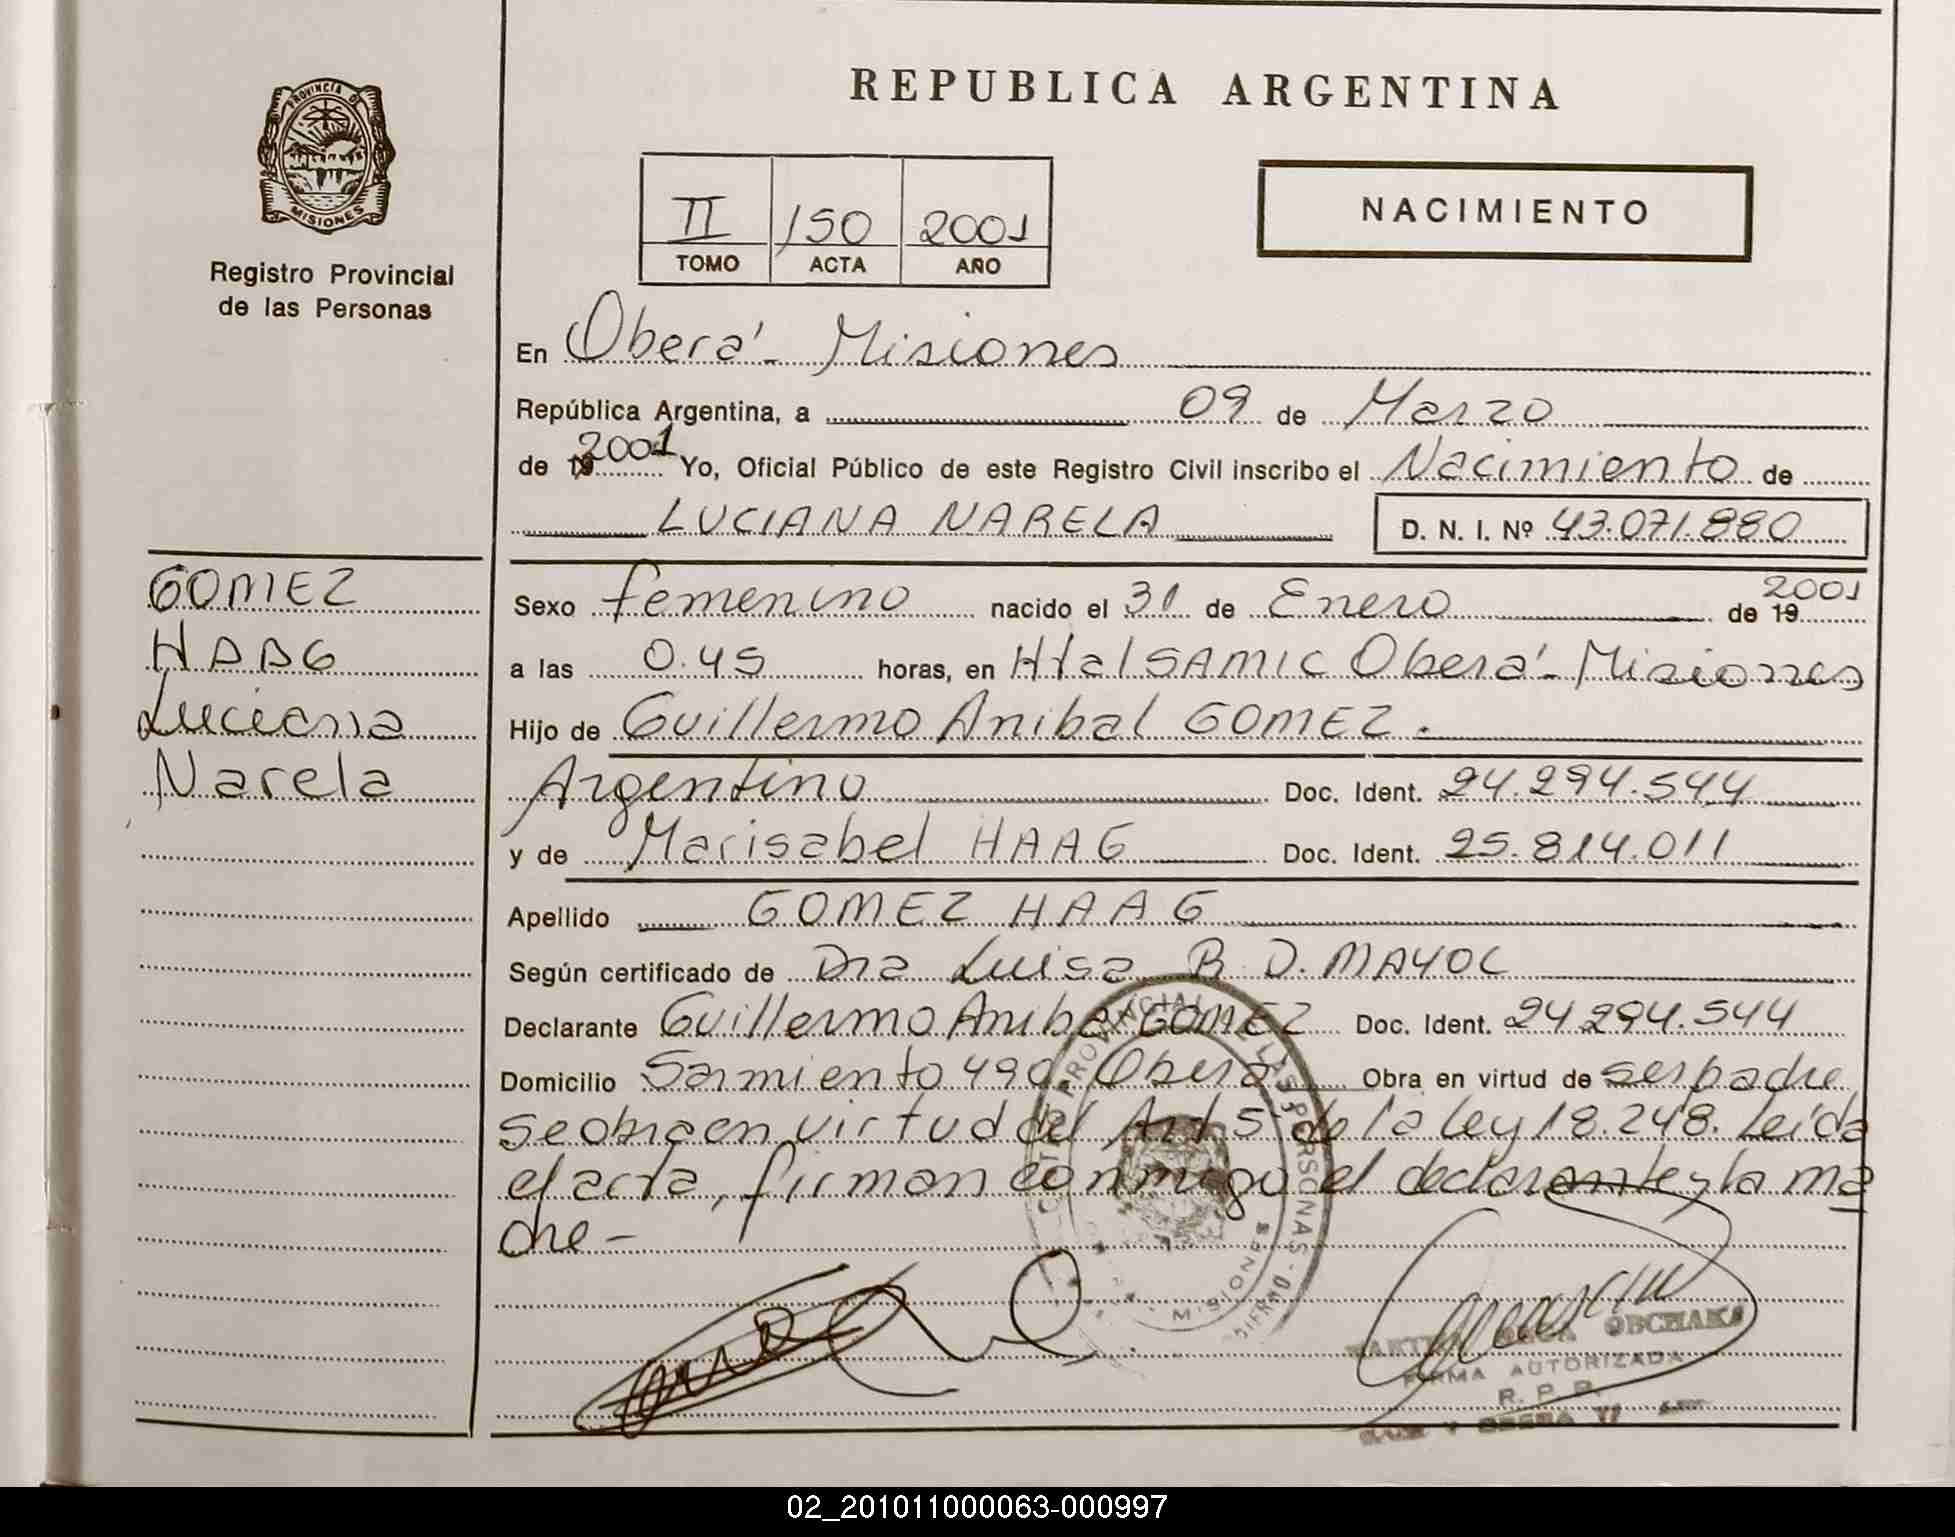 REPUBLICA ARGENTINA
PROVINCIA DE
MISIONES
Registro Provincial
de las Personas
II 150 2001
TOMO ACTA AÑO
NACIMIENTO
En Oberá - Misiones
República Argentina, a 09 de Marzo
de 19 2001 Yo, Oficial Público de este Registro Civil inscribo el Nacimiento de
LUCIANA NARELA D. N. I. Nº 43.071.880
GOMEZ
HAAG
Luciana
Narela
Sexo femenino nacido el 31 de Enero de 19 2001
a las 0.45 horas, en Htal SAMIC Oberá - Misiones
Hijo de Guillermo Anibal GOMEZ.
Argentino Doc. Ident. 24.294.544
y de Marisabel HAAG Doc. Ident. 25.814.011
Apellido GOMEZ HAAG
Según certificado de Dra Luisa B. D. MAYOL
Declarante Guillermo Anibal GOMEZ Doc. Ident. 24294.544
Domicilio Sarmiento 490. Oberá Obra en virtud de ser padre
se obra en virtud del Art. 5 de la ley 18.248. Leida
el acta, firman conmigo el declarante y la ma
dre -
PROVINCIAL DE LAS PERSONAS -
MISIONES
OBCHAKA
FIRMA AUTORIZADA
R. P. P.
02_201011000063-000997